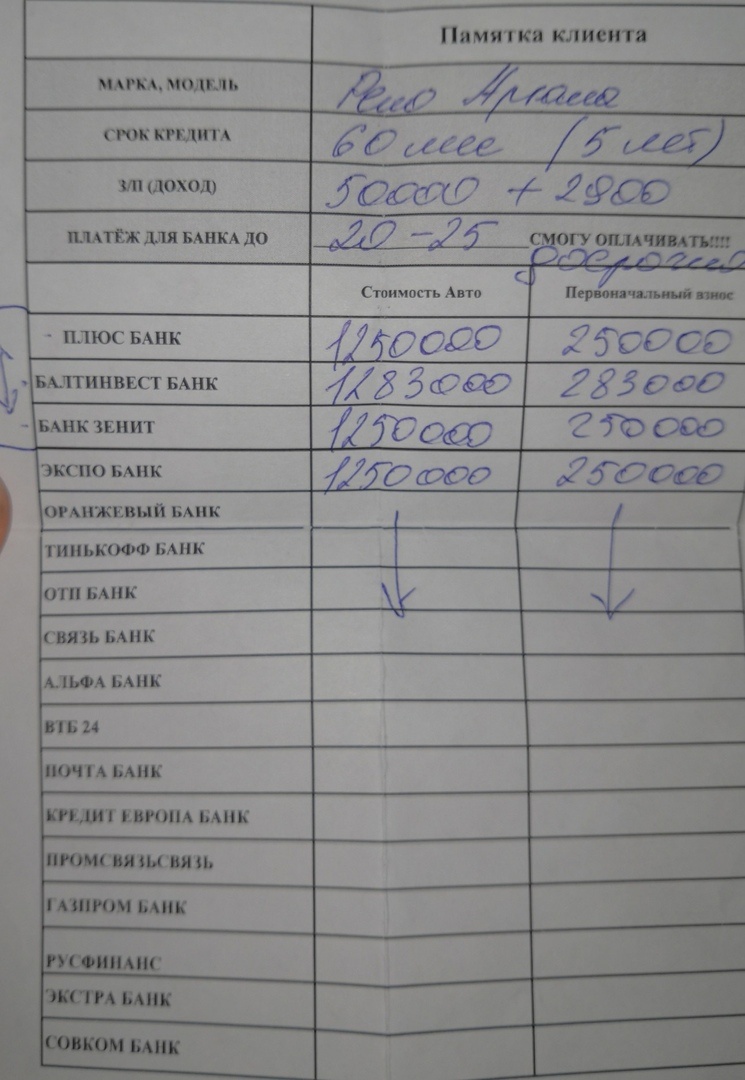 Памятка клиента
МАРКА, МОДЕЛЬ Рено Аркана
СРОК КРЕДИТА 60 мес (5 лет)
З/П (ДОХОД) 50000 + 2900
ПЛАТЁЖ ДЛЯ БАНКА ДО 20-25 СМОГУ ОПЛАЧИВАТЬ!!!!
досрочно
Стоимость Авто Первоначальный взнос
- ПЛЮС БАНК 1250000 250000
- БАЛТИНВЕСТ БАНК 1283000 283000
- БАНК ЗЕНИТ 1250000 250000
ЭКСПО БАНК 1250000 250000
ОРАНЖЕВЫЙ БАНК
ТИНЬКОФФ БАНК
ОТП БАНК
СВЯЗЬ БАНК
АЛЬФА БАНК
ВТБ 24
ПОЧТА БАНК
КРЕДИТ ЕВРОПА БАНК
ПРОМСВЯЗЬСВЯЗЬ
ГАЗПРОМ БАНК
РУСФИНАНС
ЭКСТРА БАНК
СОВКОМ БАНК